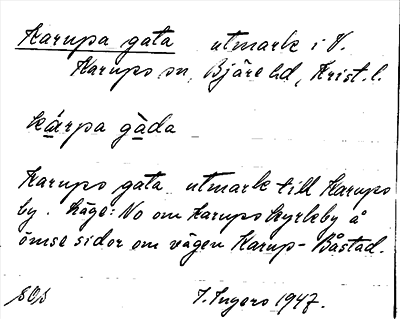 Karupa gata utmark i V.
Karups sn, Bjäre hd, Krist. l.
kárpa gàda
Karups gata utmark till Karups
by. Läge: No om Karups kyrkby å
ömse sidor om vägen Karup-Båstad.
J. Ingers 1947.